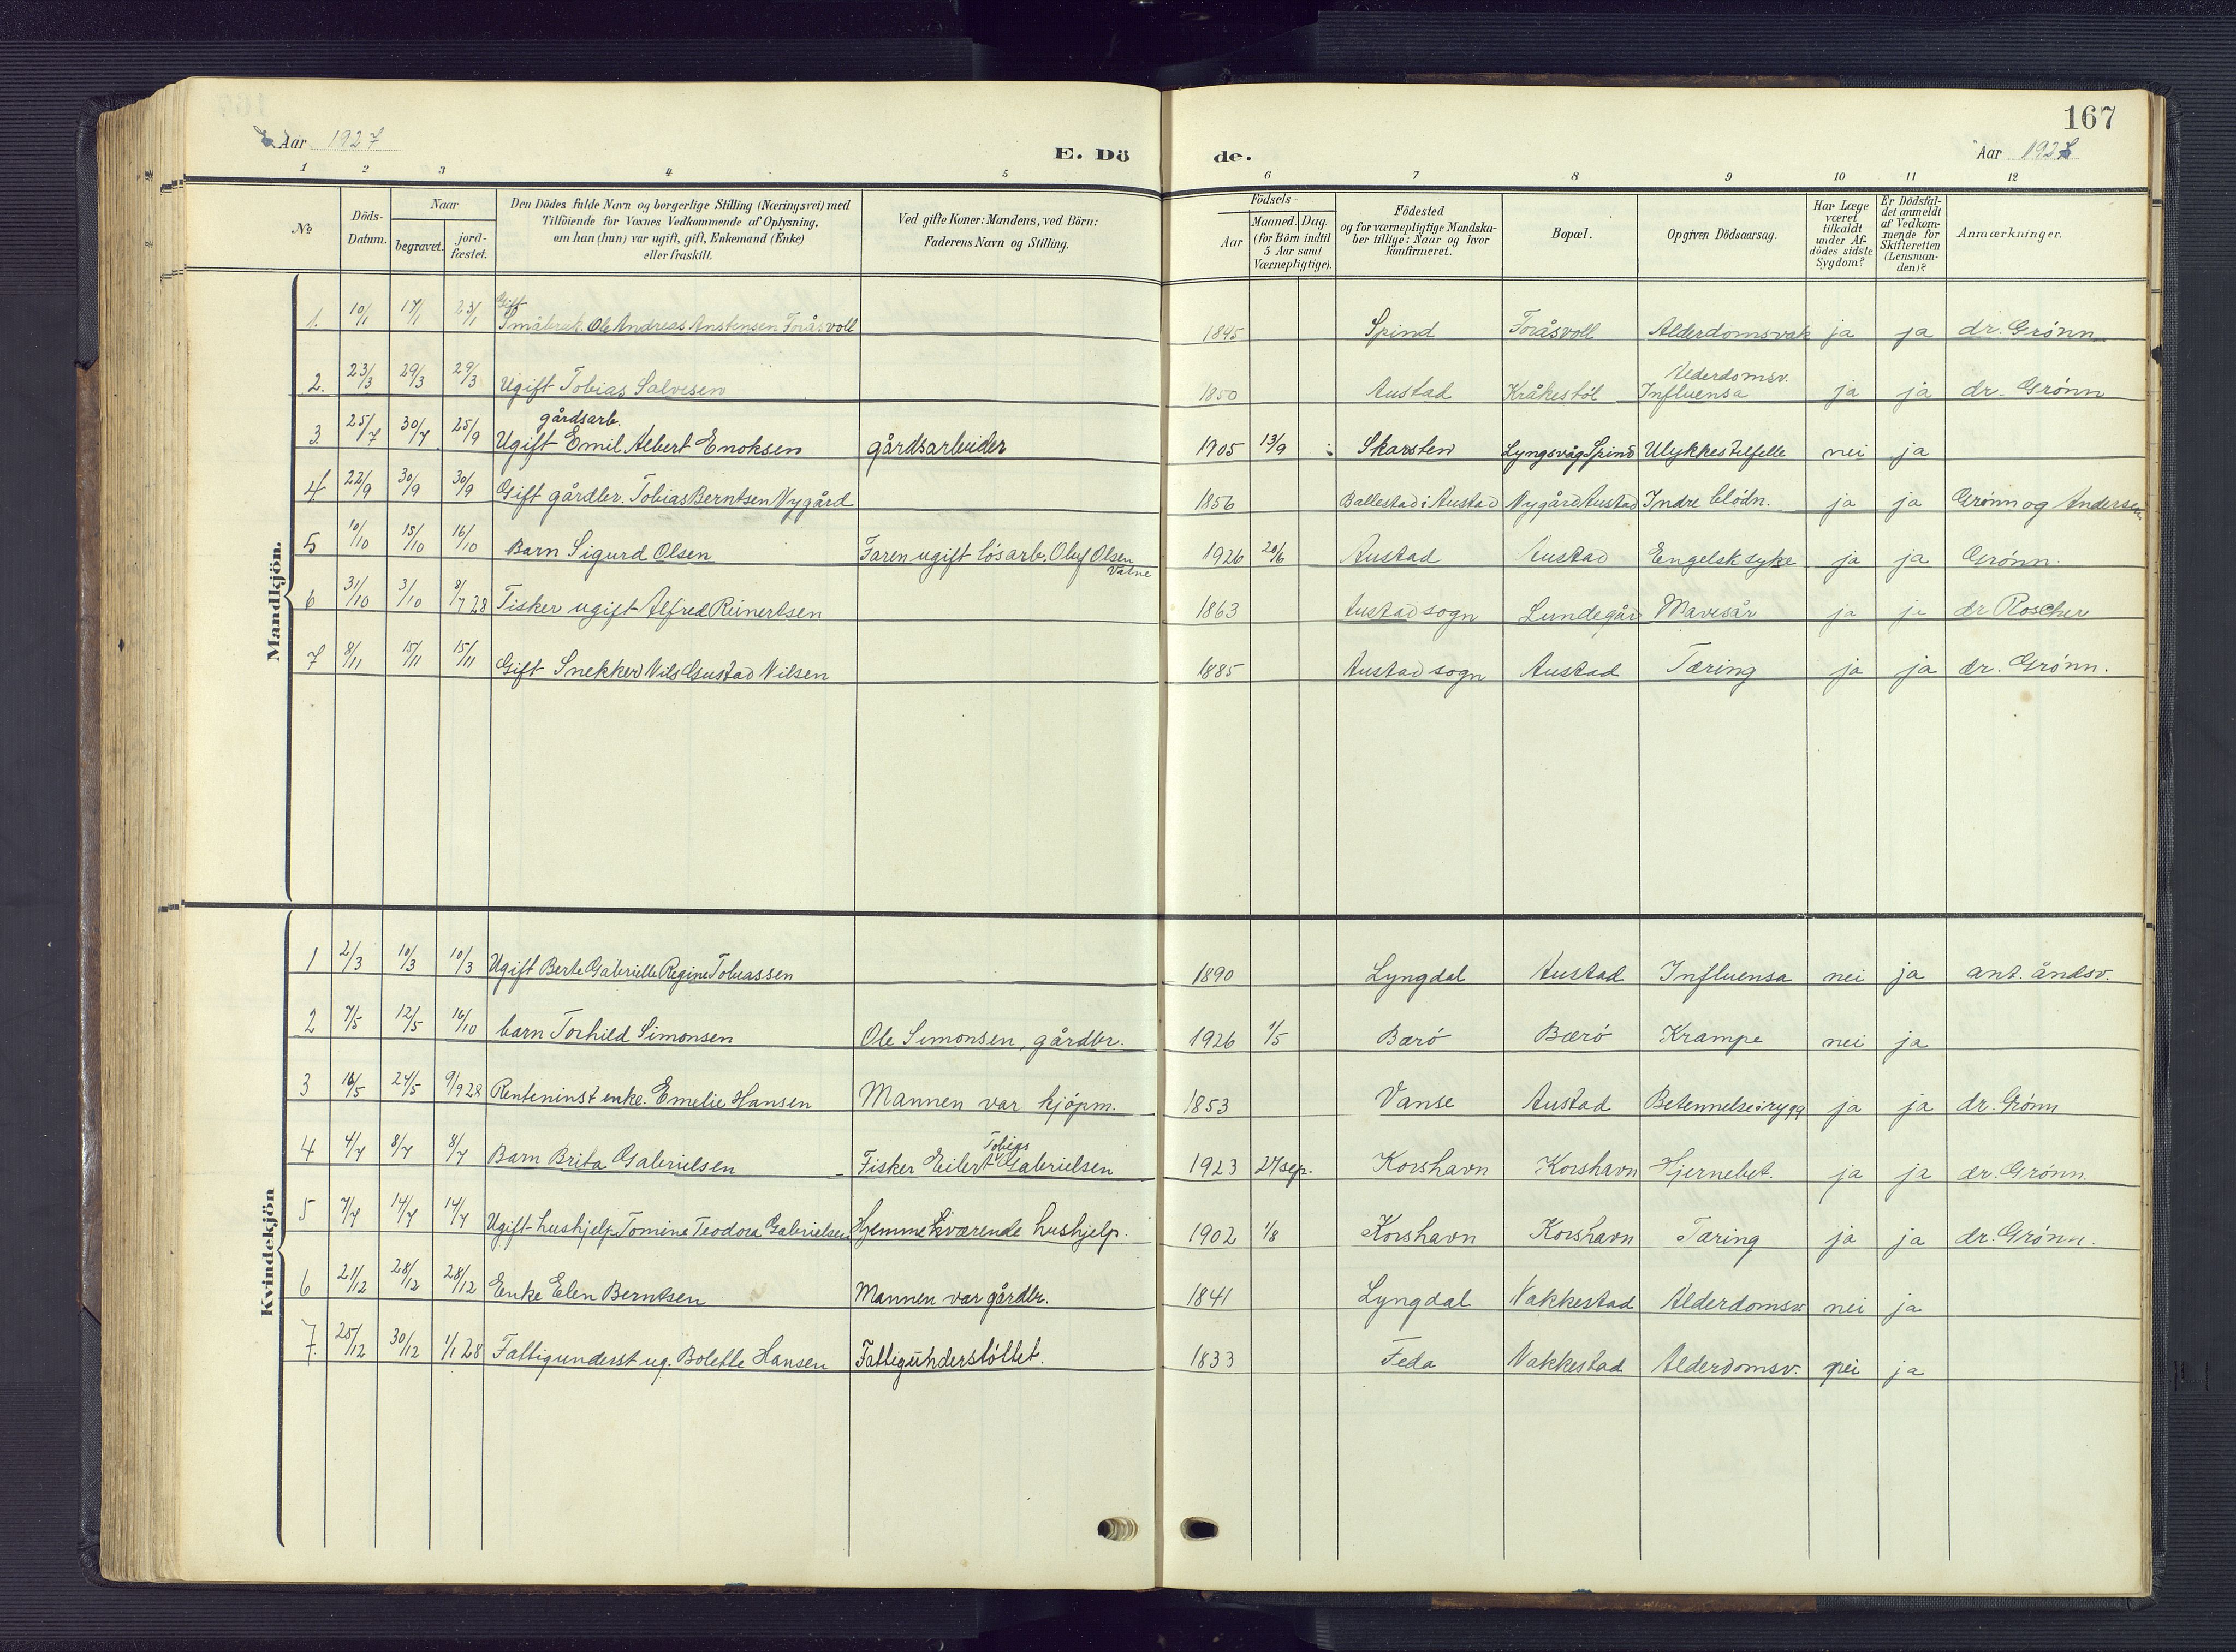 167
Aar 1927
E. Dö
de.
Aar 1927
1 2 3 4 5 6 7 8 9 10 11 12
No
Döds-Datum.
Naar
begravet.
jord-fæstet.
Den Dödes fulde Navn og borgerlige Stilling (Næringsvei) med
Tilföiende for Voxnes Vedkommende af Oplysning,
om han (hun) var ugift, gift, Enkemand (Enke)
eller fraskilt.
Ved gifte Koner: Mandens, ved Börn:
Faderens Navn og Stilling.
Födsels-
Aar
Maaned. Dag.
(for Börn indtil
5 Aar samt
Værnepligtige).
Födested
og for værnepligtige Mandska-
ber tillige: Naar og hvor
konfirmeret.
Bopæl.
Opgiven Dödsaarsag.
Har Læge
været
tilkaldt
under Af-
dödes sidste
Sygdom?
Er Dödsfal-
det anmeldt
af Vedkom-
mende for
Skifteretten
(Lensman-
den)?
Anmærkninger.
Mandkjön.
1. 10/1 17/1 23/1 Gift Småbruk. Ole Andreas Anstensen Foråsvoll 1845 Spind Foråsvoll Alderdomsvak ja ja dr. Grönn
2. 23/3 29/3 29/3 Ugift Tobias Salvesen 1850 Austad Kråkestöl Alderdomsv. Influensa ja ja dr. Grönn
3. 25/7 30/7 25/9 gårdsarb. Ugift Emil Albert Enoksen gårdsarbeider 1905 13/9 Skarstein Lyngsvåg Spind Ulykkestilfelle nei ja
4 22/9 30/9 30/9 Gift gårdbr. Tobias Berntsen Nygård 1856 Ballestad i Austad Nygård Austad Indre blödn. ja ja Grönn og Andersen
5 10/10 15/10 16/10 Barn Sigurd Olsen Faren ugift lösarb. Oluf Olsen Vatne 1926 20/6 Austad Austad Engelsk syke ja ja Grönn.
6 31/10 3/10 8/7 28 Fisker ugift Alfred Reinertsen 1863 Austad sogn Lundegår Mavesår ja ja dr Roscher
7 8/11 15/11 15/11 Gift Snekker Nils Gustad Nilsen 1885 Austad sogn Austad Tæring ja ja dr. Grönn.
Kvindekjön
1 2/3 10/3 10/3 Ugift Berte Gabrielle Regine Tobiassen 1890 Lyngdal Austad Influensa nei ja ant. åndsv.
2 7/5 12/5 16/10 barn Torhild Simonsen Ole Simonsen, gårdbr. 1926 1/5 Bærö Bærö Krampe nei ja
3 16/5 24/5 9/9 28 Renteninst enke. Emelie Hansen Mannen var kjöpm. 1853 Vanse Austad Betennelse i rygg ja ja dr. Grönn
4 4/7 8/7 8/7 Barn Brita Gabrielsen Fisker Eilert Tobias Gabrielsen 1923 27 sep. Korshavn Korshavn Hjernebet. ja ja dr. Grönn.
5 7/7 14/7 14/7 Ugift hushjelp Tomine Teodora Gabrielsen Hjemmeværende hushjelp. 1902 1/8 Korshavn Korshavn Tæring ja ja dr. Grönn.
6 21/12 28/12 28/12 Enke Elen Berntsen Mannen var gårdbr. 1841 Lyngdal Vakkestad Alderdomsv nei ja
7. 25/12 30/12 1/1 28 Fattigunderst ug. Bolette Hansen Fattigunderstöttet. 1833 Feda Vakkestad Alderdomsv. nei ja